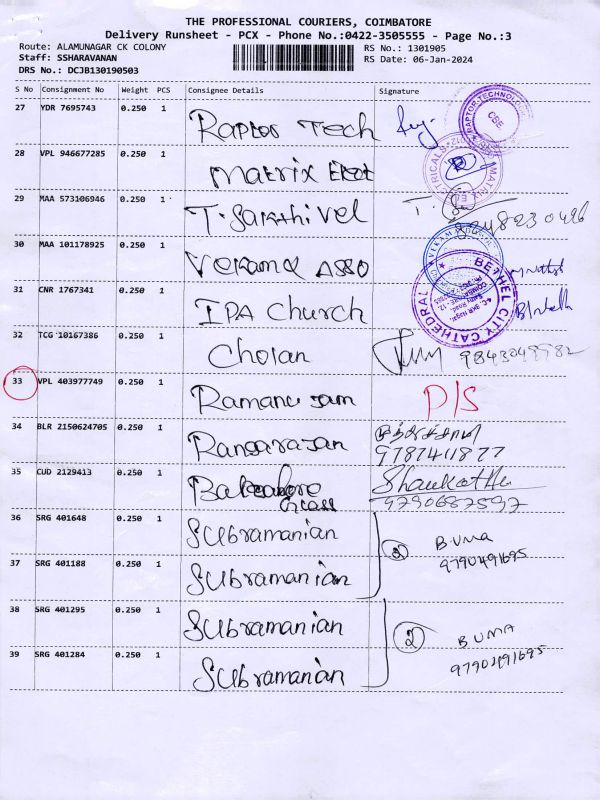 THE PROFESSIONAL COURIERS, COIMBATORE
Delivery Runsheet - PCX - Phone No.:0422-3505555 - Page No.:3
Route: ALAMUNAGAR CK COLONY
RS No.: 1301905
Staff: SSHARAVANAN
RS Date: 06-Jan-2024
DRS No.: DCJB130190503
S No Consignment No Weight PCS Consignee Details Signature
27 YDR 7695743 0.250 1 Raptor Tech
RAPTOR TECHNOLOG CBE
28 VPL 946677285 0.250 1 Matrix Elect
MATRIX TRICALS
29 MAA 573106946 0.250 1 T. Sakthivel
30 MAA 101178925 0.250 1 Vekama Asso
31 CNR 1767341 0.250 1 IPA Church
BETHEL CITY CATHEDRAL
32 TCG 10167386 0.250 1 Cholan
33 VPL 403977749 0.250 1 Ramanujam D/S
34 BLR 2150624705 0.250 1 Rangarajan
9787411877
35 CUD 2129413 0.250 1 Glass
9790687597
36 SRG 401648 0.250 1 Subramanian
2 BUMA
37 SRG 401188 0.250 1 Subramanian
38 SRG 401295 0.250 1 Subramanian
2 BUMA
39 SRG 401284 0.250 1 Subramanian